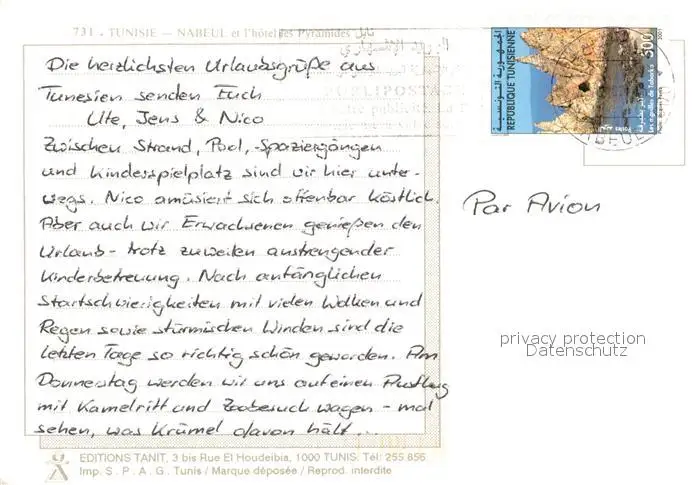 731 - TUNISIE - NABEUL et l'hôtel les Pyramides نابل
Die herzlichsten Urlaubsgrüße aus
Tunesien senden Euch
Ute, Jens & Nico
Zwischen Strand, Pool, -Spaziergängen
und Kinderspielplatz sind wir hier unter-
wegs. Nico amüsiert sich offenbar köstlich.
Aber auch wir Erwachsenen genießen den
Urlaub - trotz zuweilen anstrengender
Kinderbetreuung. Nach anfänglichen
Startschwierigkeiten mit vielen Wolken und
Regen sowie stürmischen Winden sind die
letzten Tage so richtig schön geworden. Am
Donnerstag werden wir uns auf einen Ausflug
mit Kamelritt und Zoobesuch wagen - mal
sehen, was Krümel davon hält...
EDITIONS TANIT, 3 bis Rue El Houdeibia, 1000 TUNIS. Tél: 255 856
Imp. S. P. A. G. Tunis / Marque déposée / Reprod. interdite
PUBLIPOSTAGE
الجمهورية التونسية
REPUBLIQUE TUNISIENNE
300
2001
Les aiguilles de Tabarka
Par Avion
privacy protection
Datenschutz